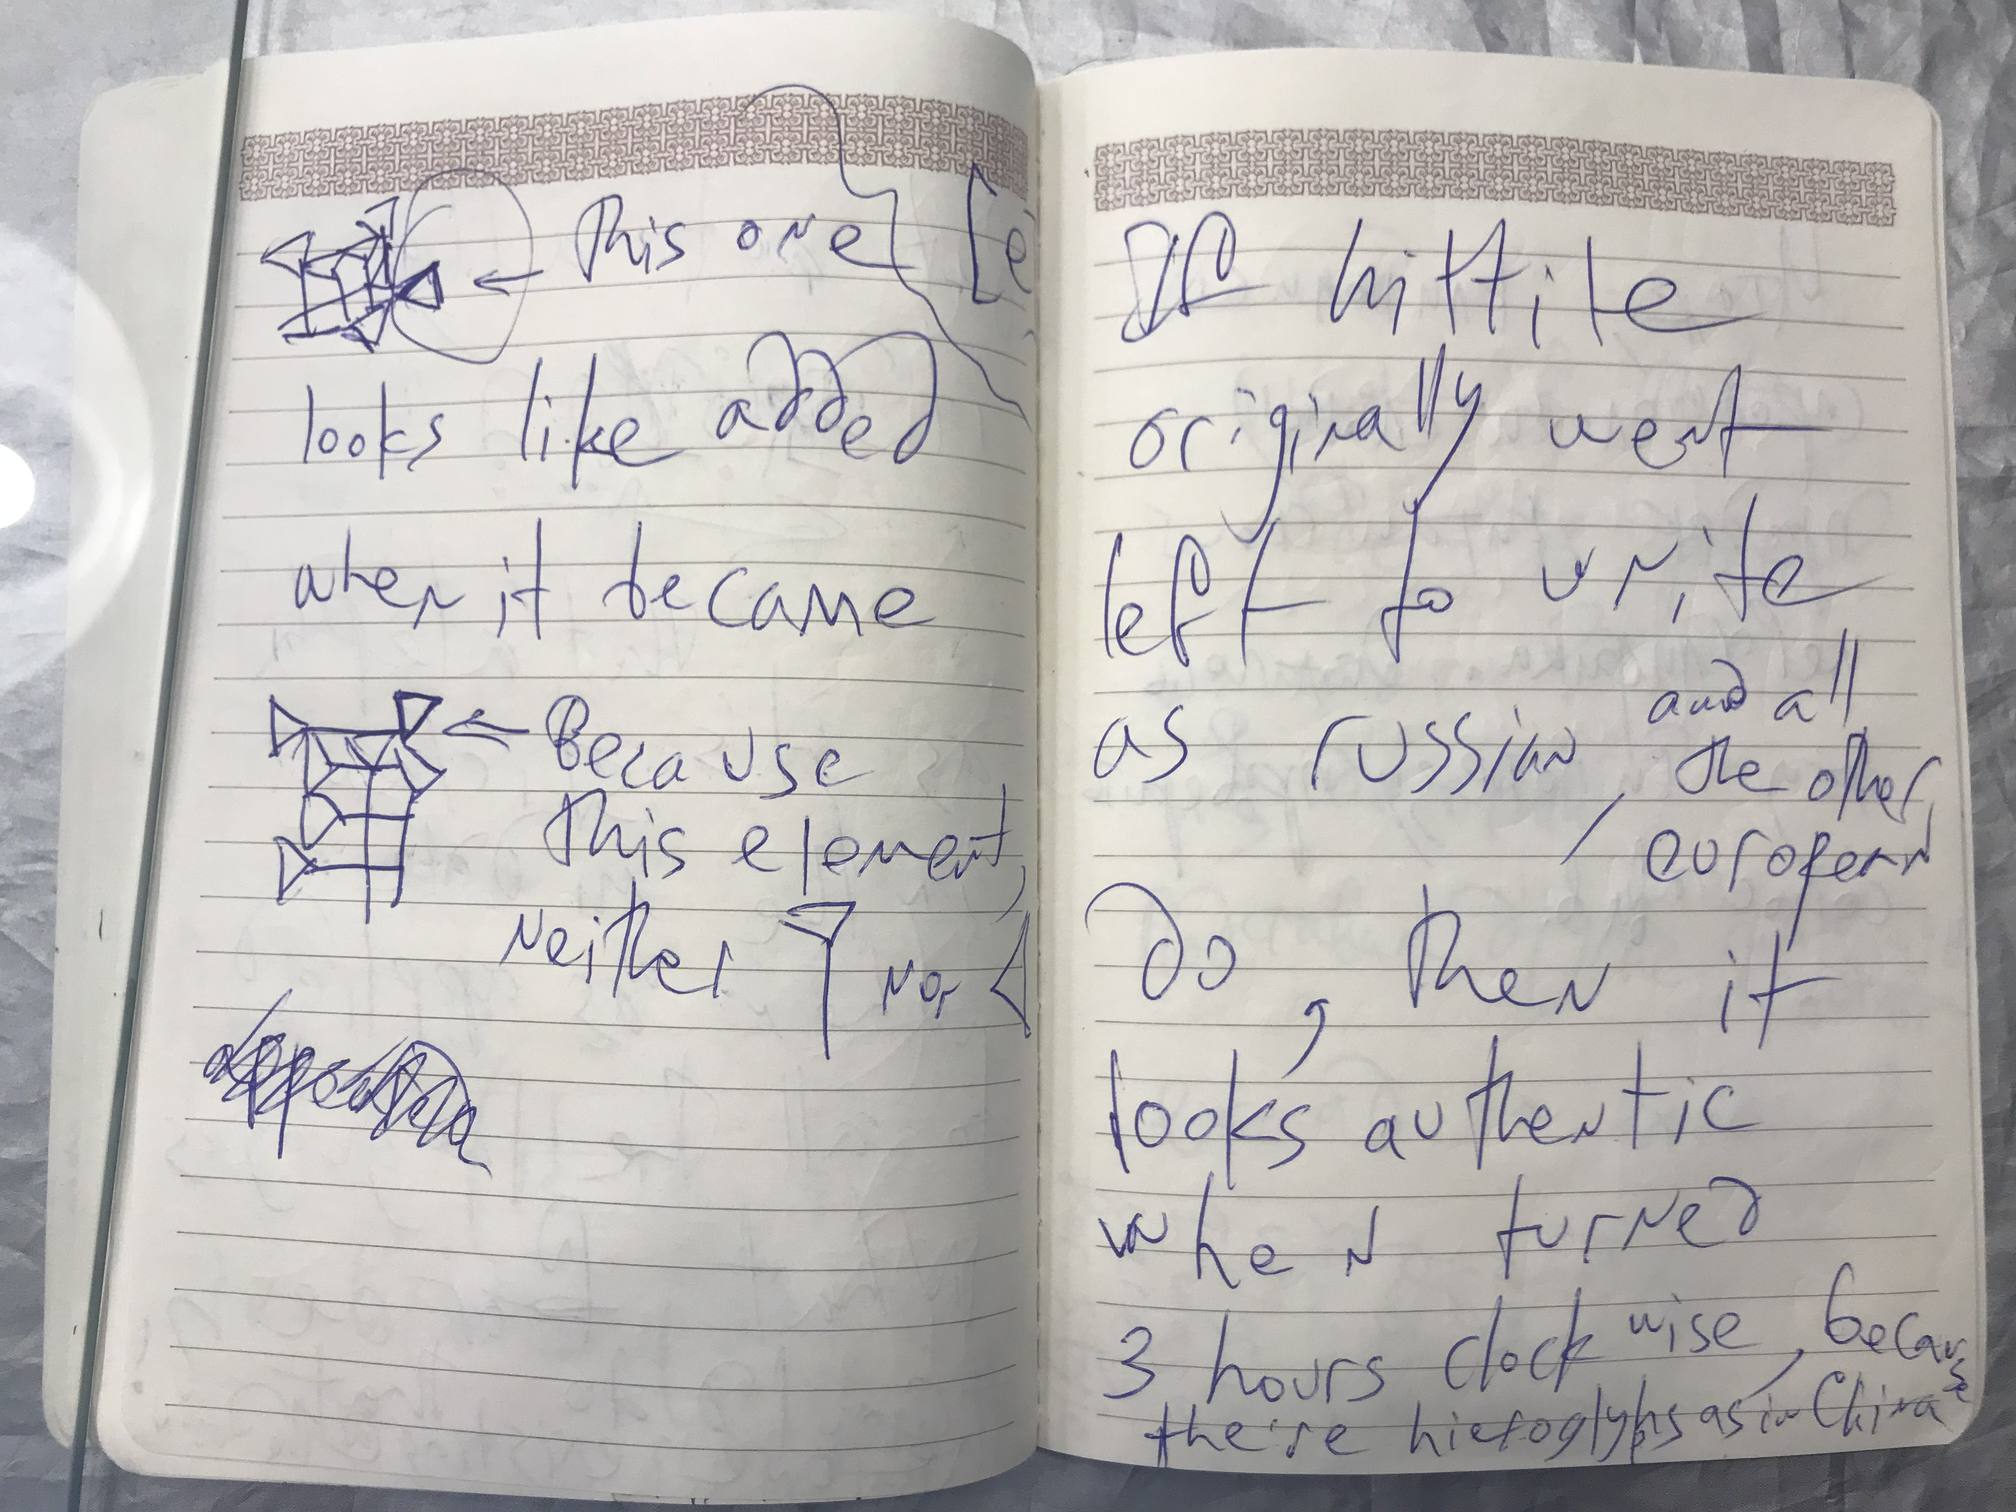 This one
looks like added
when it became
Because
this element,
neither nor
If hittite
originally went
left to write
as russian, and all
the other
european
do, then it
looks authentic
when turned
3 hours clockwise, because
the're hieroglyphs as in China